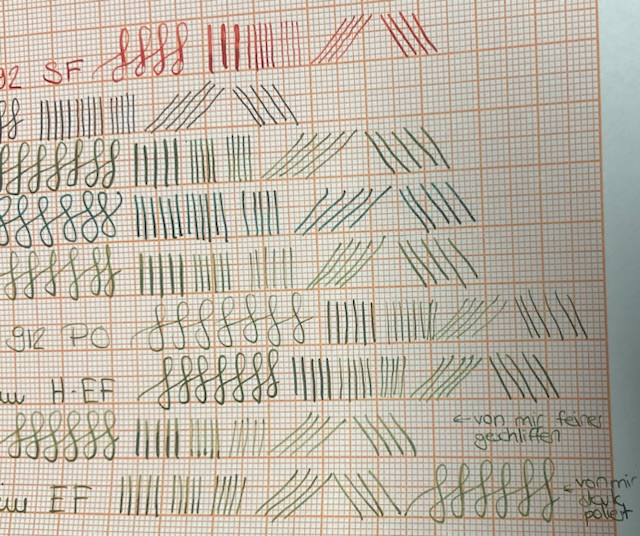 92 SF
912 PO
H-EF
← von mir feiner
geschliffen
EF
← von mir
poliert